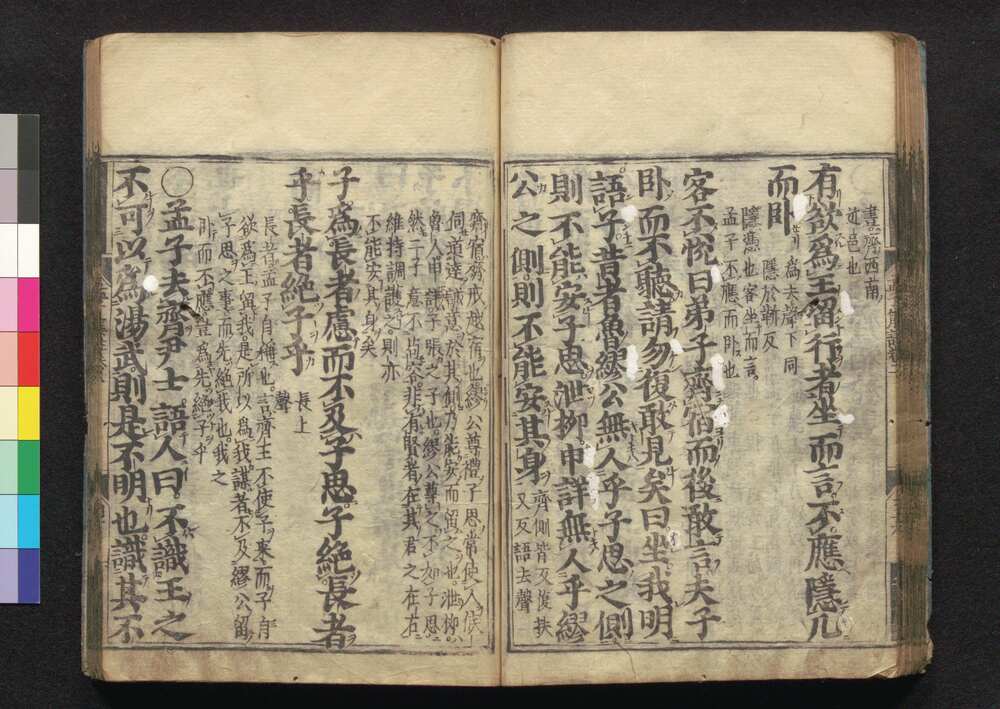 晝齊西南
近邑也
有欲爲王留行者坐而言不應隱几
而臥
爲去聲下同
隱於靳反
隱憑也客坐而言
孟子不應而臥也
客不悅曰弟子齊宿而後敢言夫子
臥而不聽請勿復敢見矣曰坐我明
語子昔者魯繆公無人乎子思之側
則不能安子思泄柳申詳無人乎繆
公之側則不能安其身
齊側皆反復扶
又反語去聲
齊宿齊戒越宿也繆公尊禮子思常使人候
伺道達誠意於其側乃能安而留之也泄柳
魯人申詳子張之子也繆公尊之不如子思
然二子義不苟容非有賢者在其君之左右
維持調護之則亦
不能安其身矣
子爲長者慮而不及子思子絕長者
乎長者絕子乎
長上
聲
長者孟子自稱也言齊王不使子來而子自
欲爲王留我是所以爲我謀者不及繆公留
子思之事而先絕我也我之
臥而不應豈爲先絕子乎
○孟子去齊尹士語人曰不識王之
不可以爲湯武則是不明也識其不